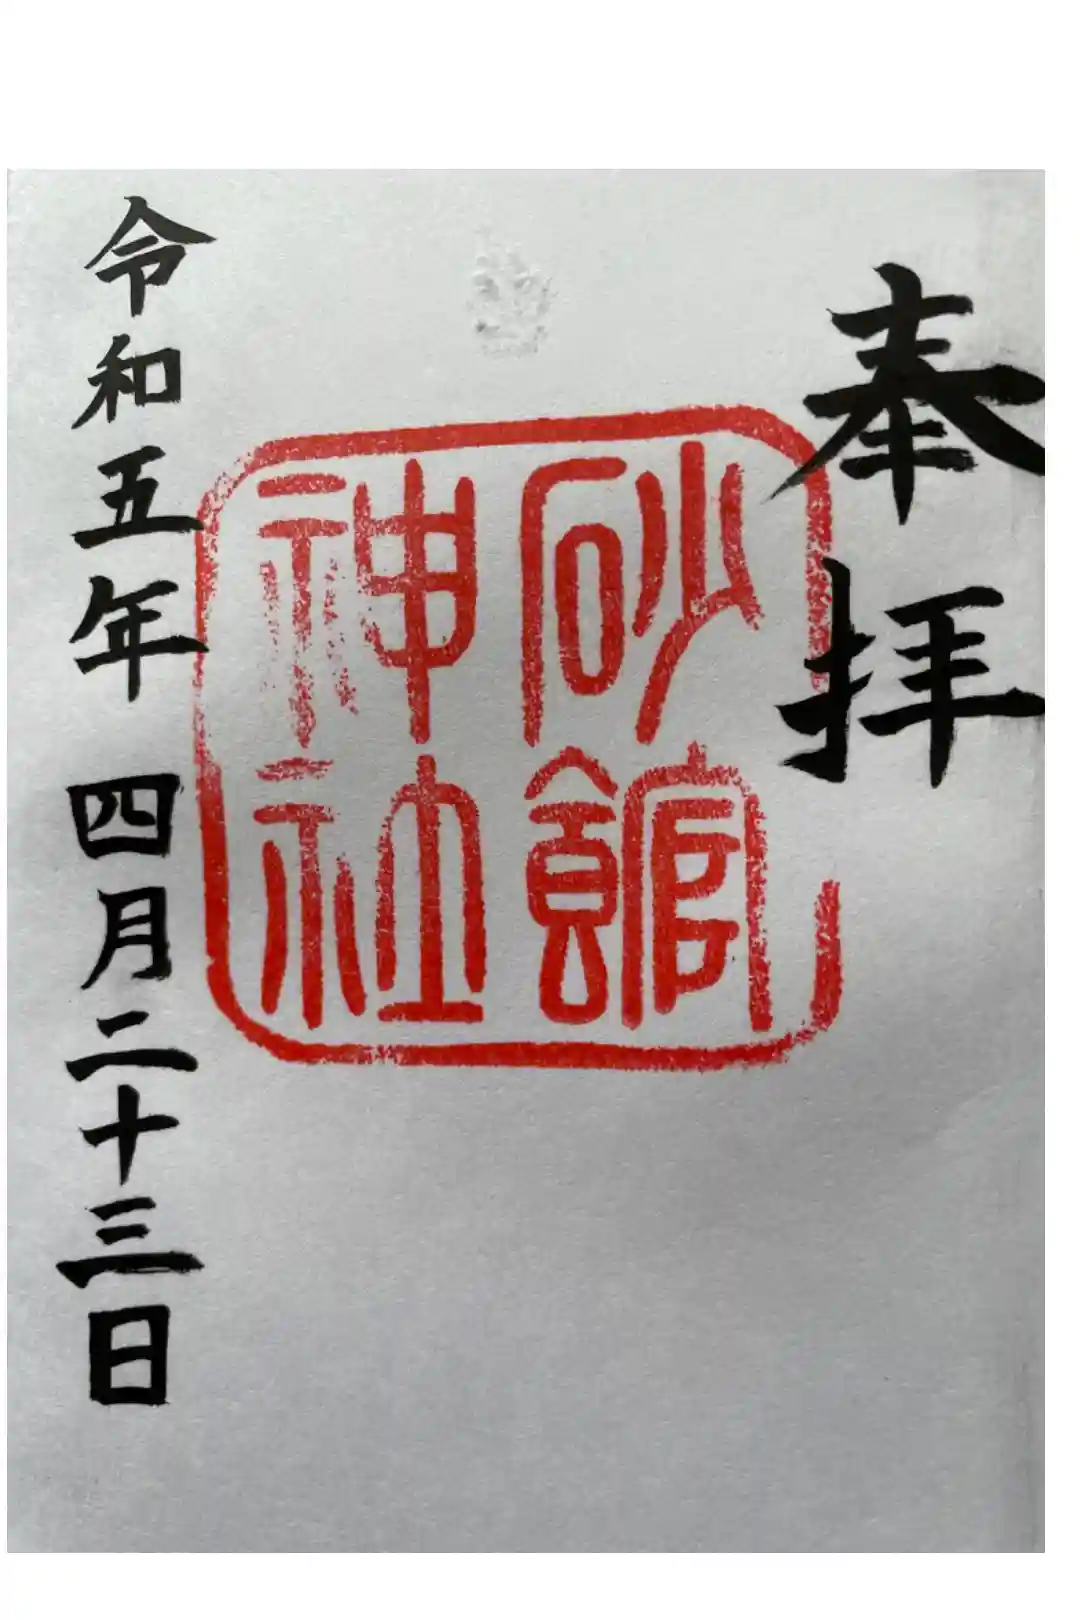 奉拝
砂館
神社
令和五年 四月二十三日